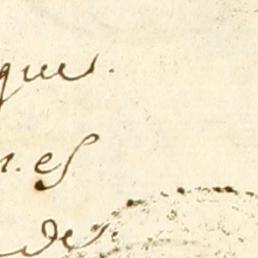 que.
n. es
de